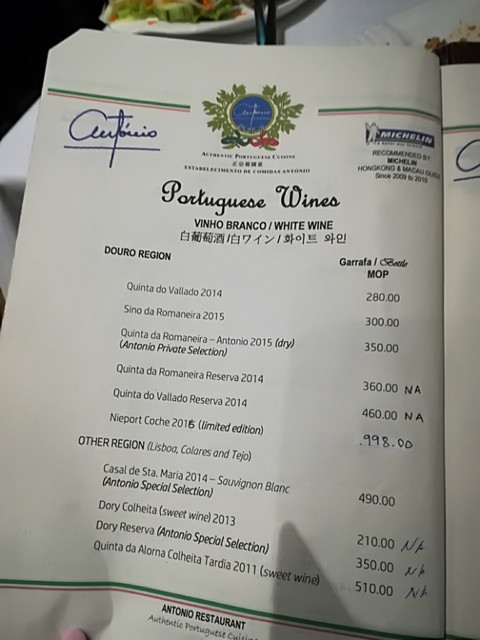 António
António
AUTHENTIC PORTUGUESE CUISINE
正宗葡國菜
ESTABELECIMENTO DE COMIDAS ANTÓNIO
MICHELIN
RECOMMENDED BY
MICHELIN
HONGKONG & MACAU GUIDE
Since 2009 to 2016
Portuguese Wines
VINHO BRANCO / WHITE WINE
白葡萄酒 / 白ワイン / 화이트 와인
DOURO REGION
Garrafa / Bottle
MOP
Quinta do Vallado 2014 280.00
Sino da Romaneira 2015 300.00
Quinta da Romaneira – Antonio 2015 (dry) 350.00
(Antonio Private Selection)
Quinta da Romaneira Reserva 2014 360.00 NA
Quinta do Vallado Reserva 2014 460.00 NA
Nieport Coche 2015 (limited edition) 998.00
OTHER REGION (Lisboa, Colares and Tejo)
Casal de Sta. Maria 2014 – Sauvignon Blanc 490.00
(Antonio Special Selection)
Dory Colheita (sweet wine) 2013 210.00 NA
Dory Reserva (Antonio Special Selection) 350.00 NA
Quinta da Alorna Colheita Tardia 2011 (sweet wine) 510.00 NA
ANTONIO RESTAURANT
Authentic Portuguese Cuisine